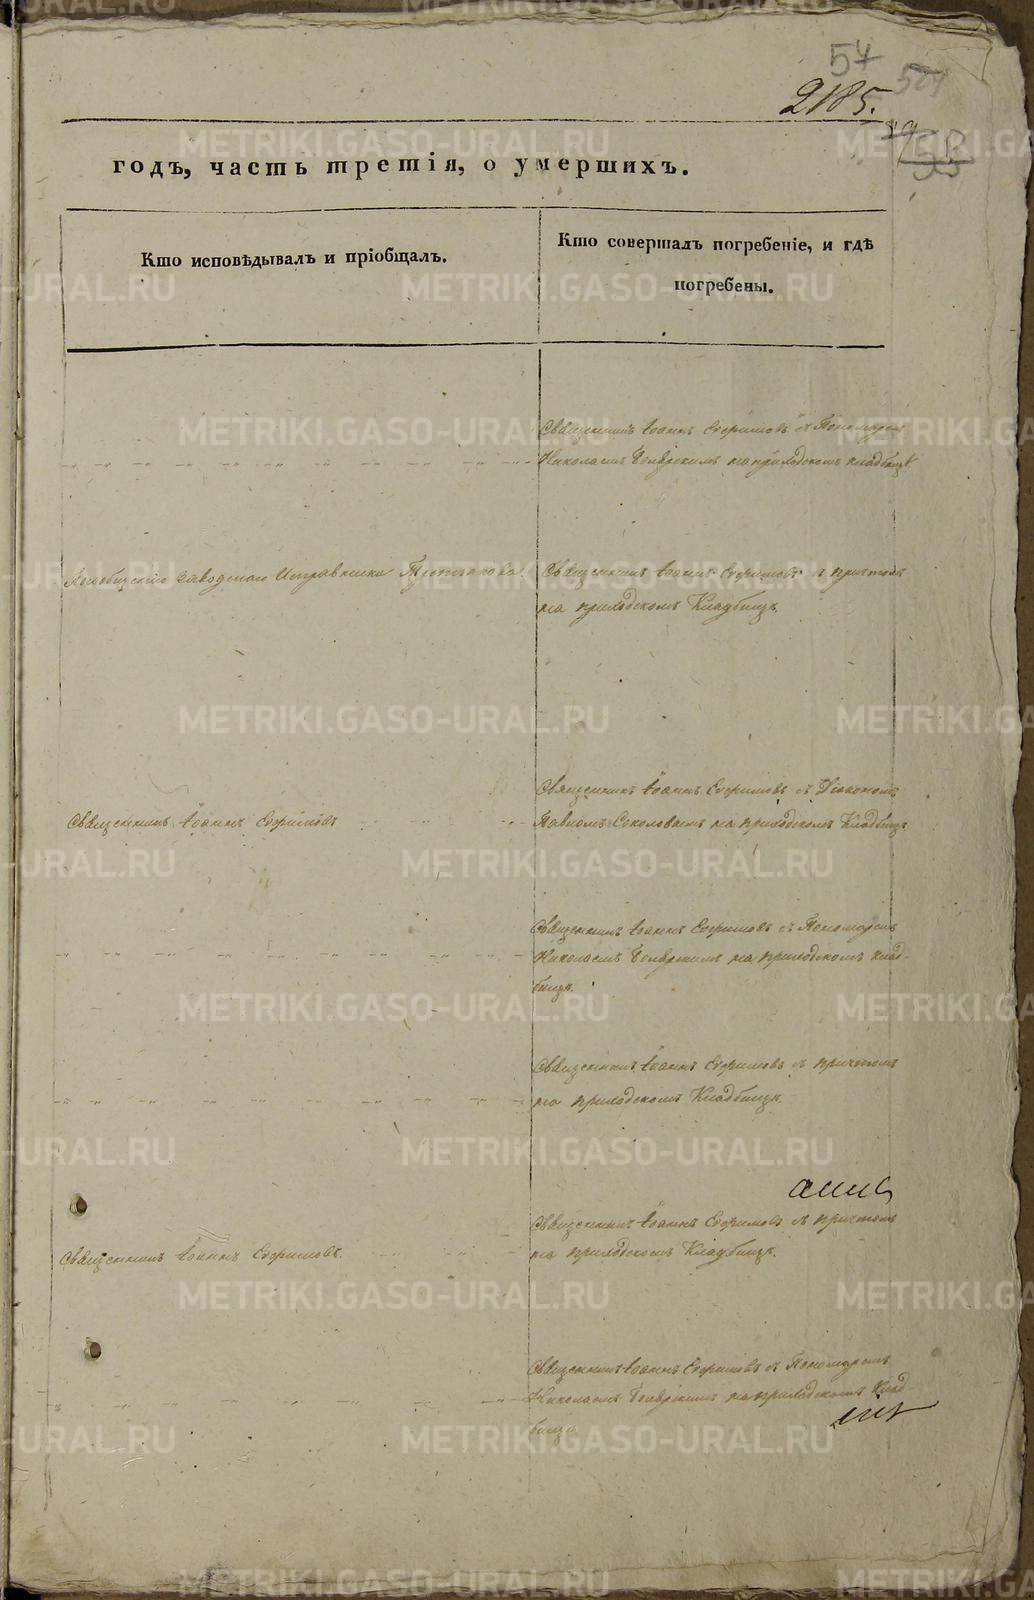 57
504
2185.
годъ, часть третія, о умершихъ.
Кто исповѣдывалъ и пріобщалъ.
Кто совершалъ погребеніе, и гдѣ
погребены.
Священникъ Іоаннъ Ефимовъ съ Пономаремъ
Николаемъ на приходскомъ кладбищѣ
заводскаго Исправника
Священникъ Іоаннъ Ефимовъ съ причтомъ
на приходскомъ Кладбищѣ.
Священникъ Іоаннъ Ефимовъ съ Діакономъ
Священникъ Іоаннъ Ефимовъ
Павломъ Соколовымъ на приходскомъ Кладбищѣ
Священникъ Іоаннъ Ефимовъ съ Пономаремъ
Николаемъ на приходскомъ клад-
бищѣ.
Священникъ Іоаннъ Ефимовъ съ причтомъ
на приходскомъ Кладбищѣ.
Священникъ Іоаннъ Ефимовъ съ причтомъ
Священникъ Іоаннъ Ефимовъ.
на приходскомъ Кладбищѣ.
Священникъ Іоаннъ Ефимовъ съ Пономаремъ
Николаемъ на приходскомъ Клад-
бищѣ
METRIKI.GASO-URAL.RU